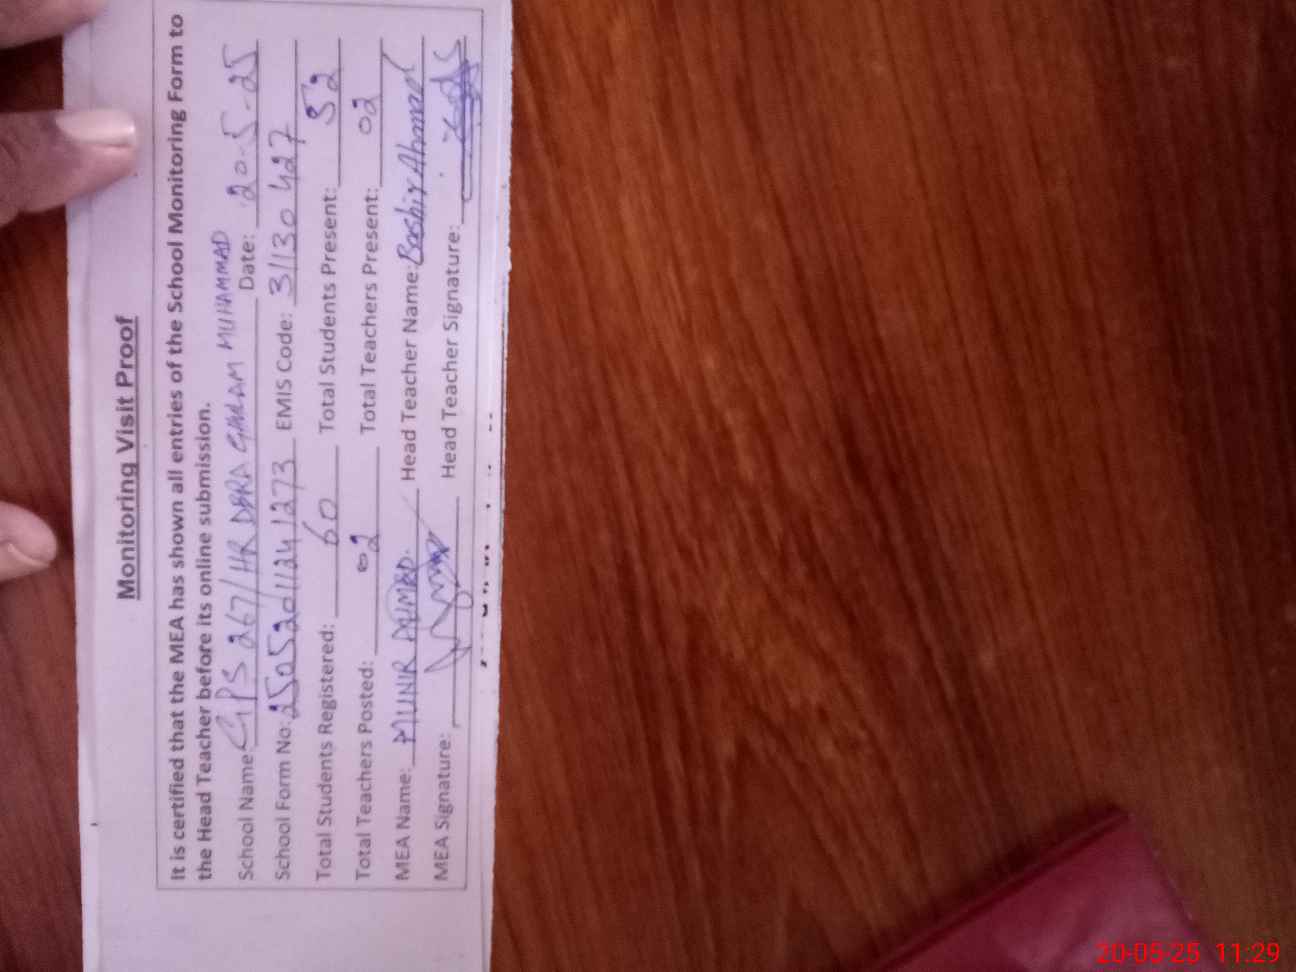 Monitoring Visit Proof
It is certified that the MEA has shown all entries of the School Monitoring Form to
the Head Teacher before its online submission.
School Name: GPS 267/HR DERA GHARAM MUHAMMAD Date: 20-5-25
School Form No: 25052011241273 EMIS Code: 31130427
Total Students Registered: 60 Total Students Present: 52
Total Teachers Posted: 02 Total Teachers Present: 02
MEA Name: MUNIR AHMAD. Head Teacher Name: Bashir Ahmad
MEA Signature: Head Teacher Signature:
20-05-25 11:29